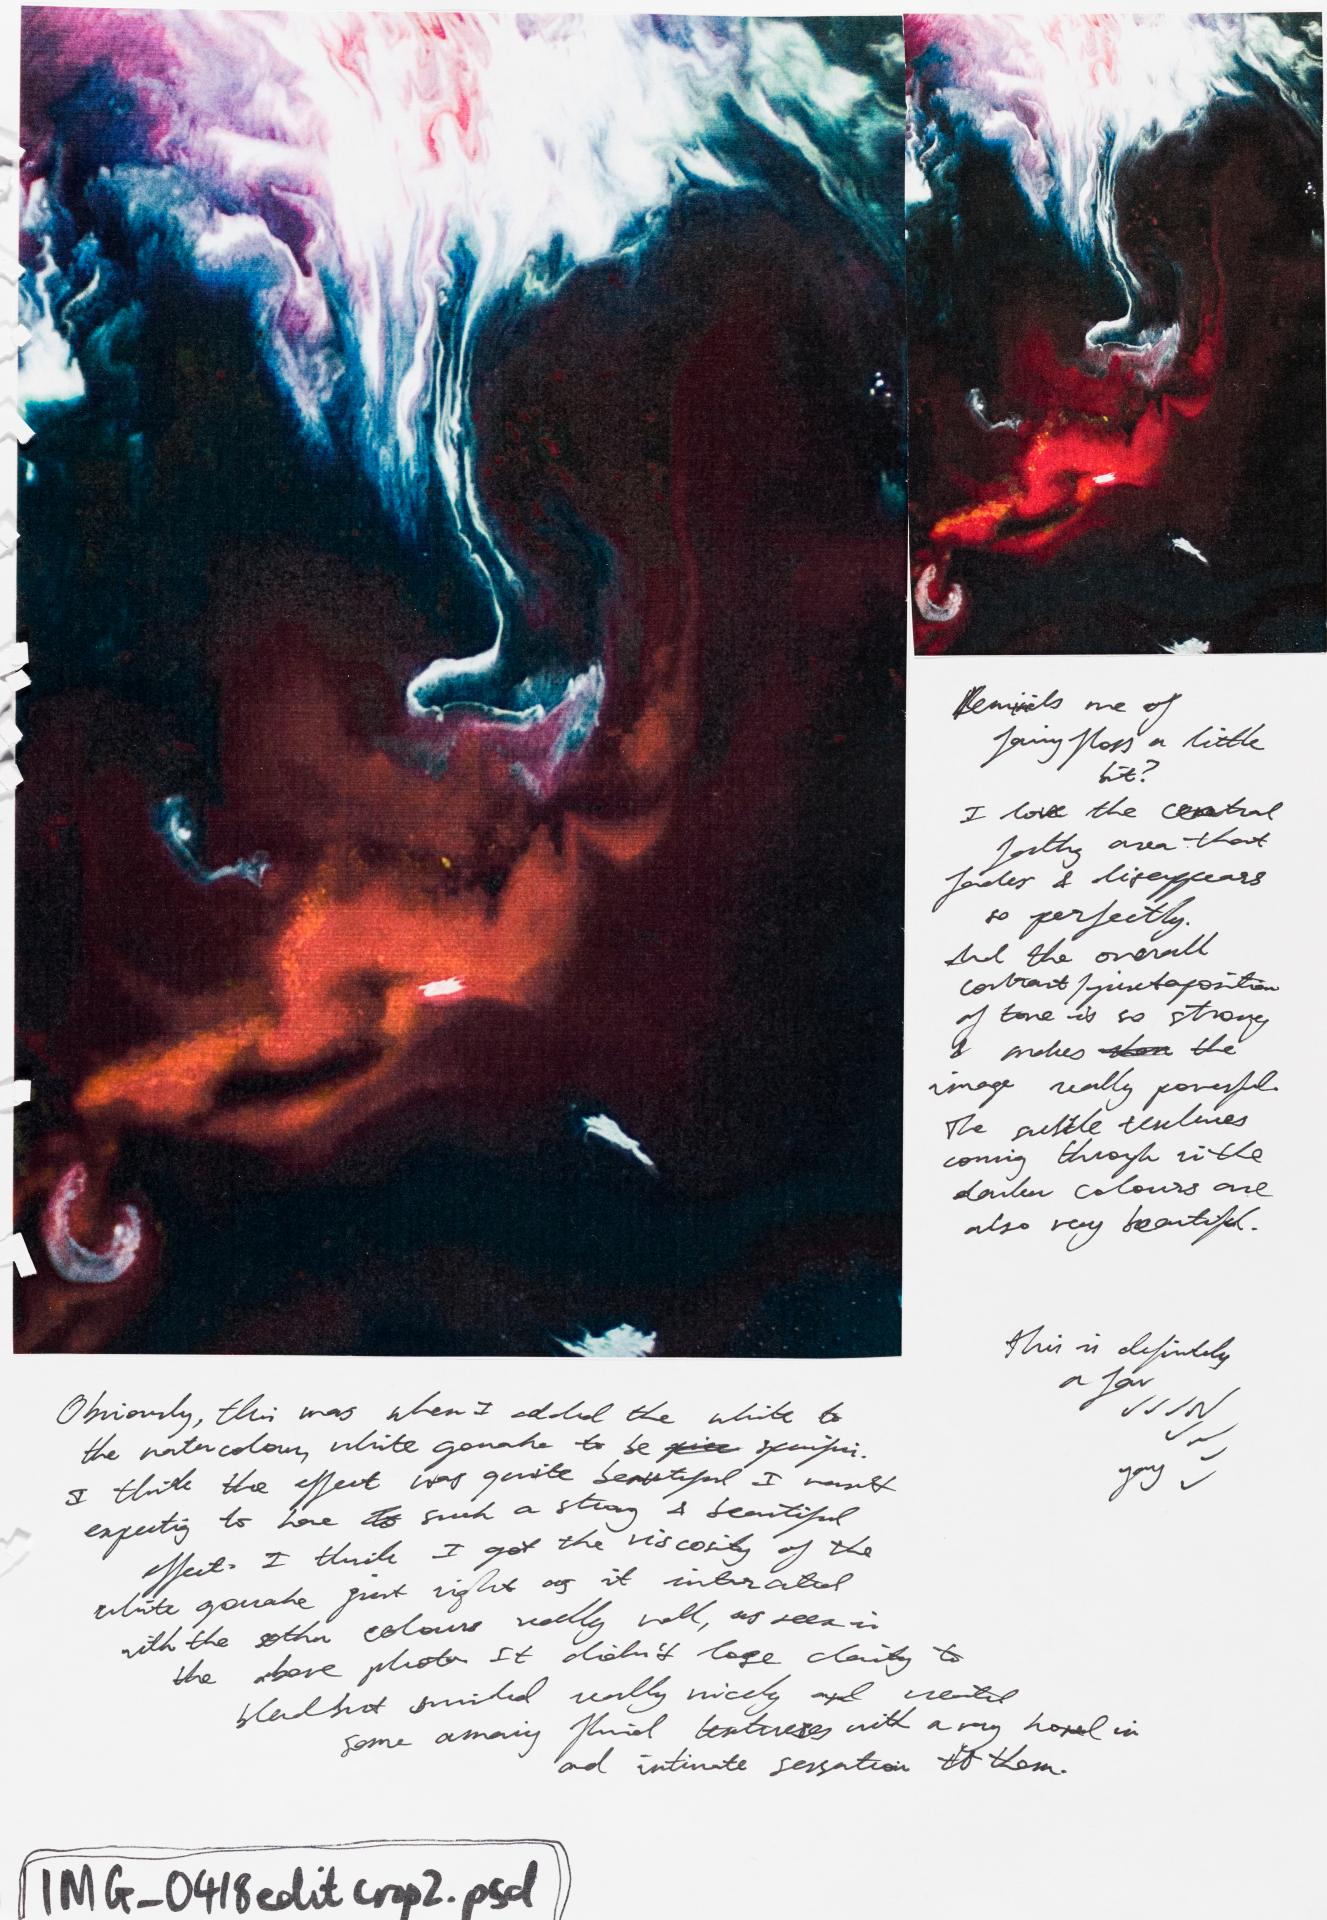 Reminds me of
fairy floss a little
bit?
I love the central
frothy area that
fades & disappears
so perfectly.
And the overall
contrast/juxtaposition
of tone is so strong
& makes the
image really powerful.
The subtle textures
coming through in the
darker colours are
also very beautiful.
This is definitely
a fav
yay
Obviously, this was when I added the white to
the watercolour, white gouache to be specific.
I think the effect was quite beautiful I wasn't
expecting to have such a strong & beautiful
effect. I think I got the viscosity of the
white gouache just right as it interacted
with the other colours really well, as seen in
the above photo. It didn't lose clarity to
blend but swirled really nicely and created
some amazing fluid textures with a very honed in
and intimate sensation to them.
IMG_0418editcrop2.psd